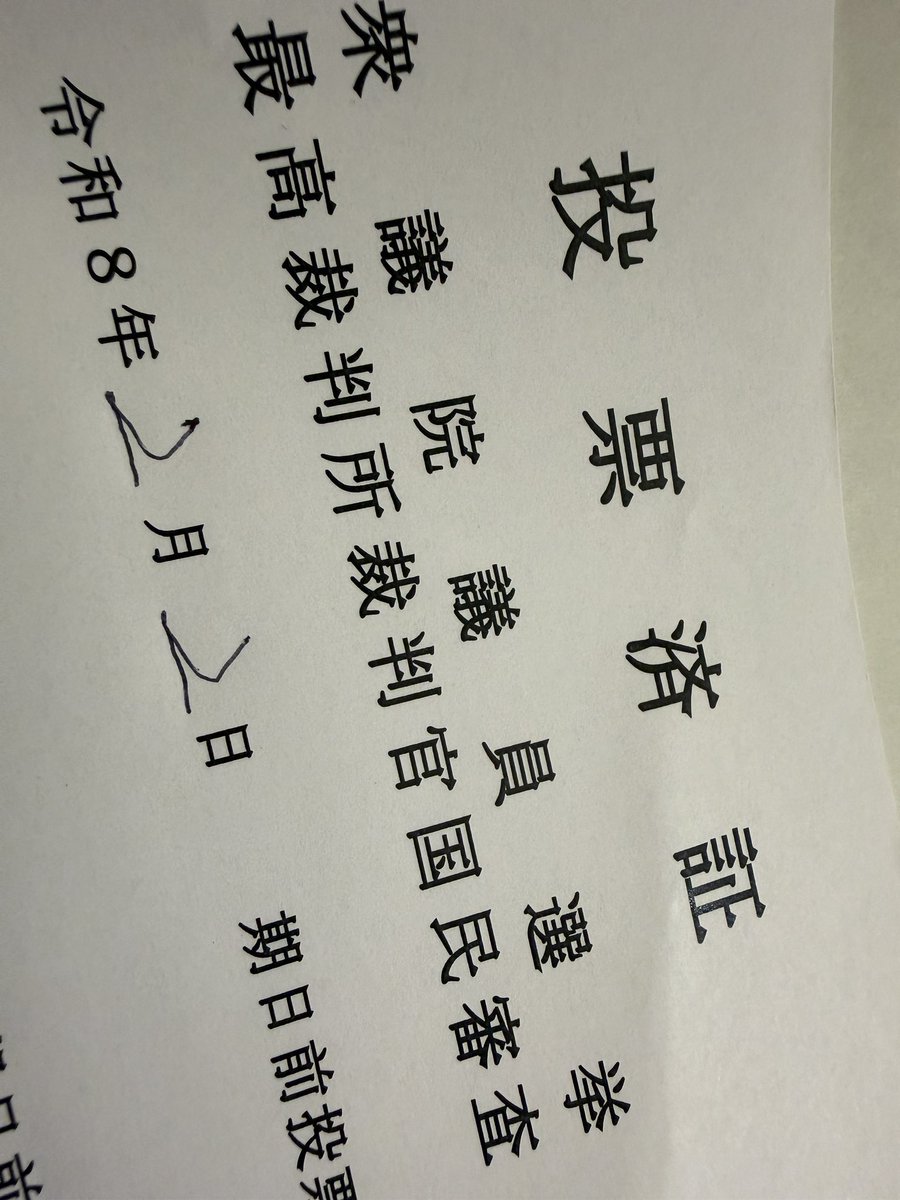 投票済証
衆議院議員選挙
最高裁判所裁判官国民審査
令和8年2月2日
期日前投票
日前